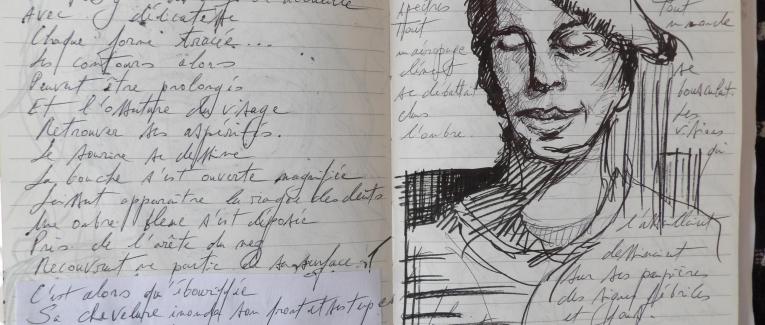 Avec délicatesse
Chaque forme tracée...
Les contours alors
Peuvent être prolongés
Et l'ossature du visage
Retrouver ses aspérités.
Le sourire se dessine
La bouche s'est ouverte magnifiée
Laissant apparaître la rangée des dents
Une ombre bleue s'est déposée
Près de l'arête du nez
Recouvrant une partie de sa surface.
C'est alors qu'ébouriffée
Sa chevelure inonda son front et ses
spectres
Tout
se débattait
dans
l'ombre.
Tout
un monde
se
bousculait.
Les
visions
qui
l'assaillaient
dessinaient
sur ses paupières
des signes fébriles
et